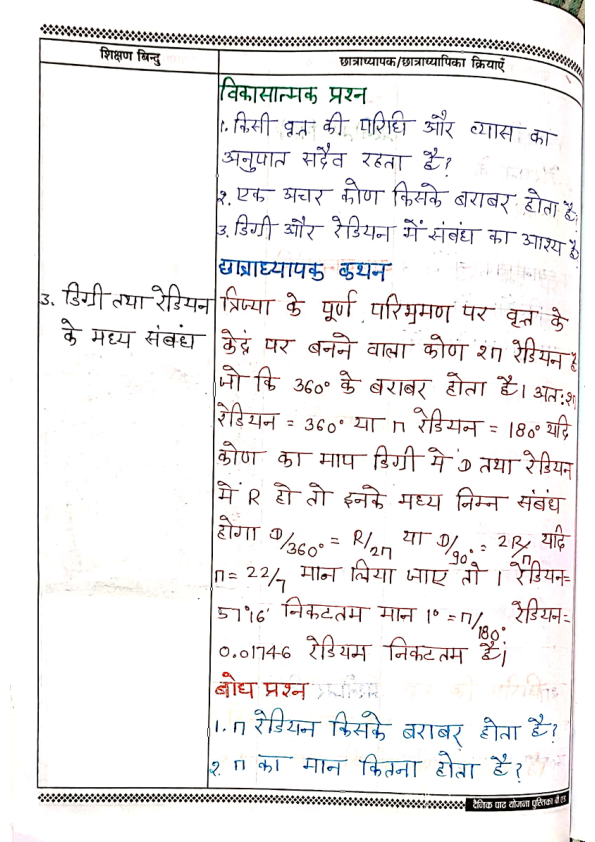 शिक्षण बिन्दु
छात्राध्यापक/छात्राध्यापिका क्रियाएँ
विकासात्मक प्रश्न
1. किसी वृत्त की परिधि और व्यास का
अनुपात सदैव रहता है?
2. एक अचर कोण किसके बराबर होता है?
3. डिग्री और रेडियन में संबंध का आश्य है
छात्राध्यापक कथन
3. डिग्री तथा रेडियन
के मध्य संबंध
त्रिज्या के पूर्ण परिभ्रमण पर वृत्त के
केंद्र पर बनने वाला कोण 2π रेडियन है
जो कि 360° के बराबर होता है। अतः 2π
रेडियन = 360° या π रेडियन = 180° यदि
कोण का माप डिग्री मे D तथा रेडियन
में R हो तो इनके मध्य निम्न संबंध
होगा D/360° = R/2π या D/90° = 2R/π यदि
π = 22/7 मान लिया जाए तो 1 रेडियन=
57°16' निकटतम मान 1° = π/180° रेडियन=
0.01746 रेडियम निकटतम है।
बोध प्रश्न
1. π रेडियन किसके बराबर होता है?
2. π का मान कितना होता है?
दैनिक पाठ योजना पुस्तिका बी.एड